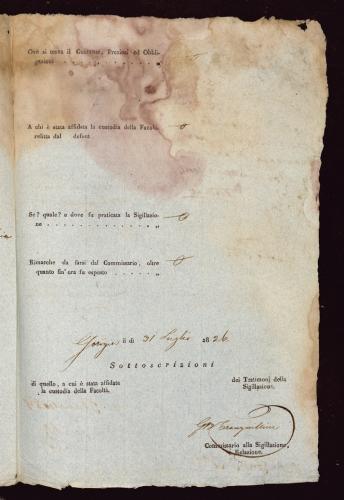 Ove si trova il Contante, Preziosi ed Obbli-
gazioni . . . . . . . . . . „
A chi è stata affidata la custodia della Facoltà
relitta dal defont . . . . . . „ 0
Se? quale? e dove fu praticata la Sigillazio-
ne . . . . . . . . . . . . . „ 0
Rimarche da farsi dal Commissario, oltre
quanto fin'ora fu esposto . . . . . „ 0
li di 31 Luglio 1826
Sottoscrizioni
di quello, a cui è stata affidata
la custodia della Facoltà.
dei Testimonj della
Sigillazione.
Commissario alla Sigillazione,
e Relazione.